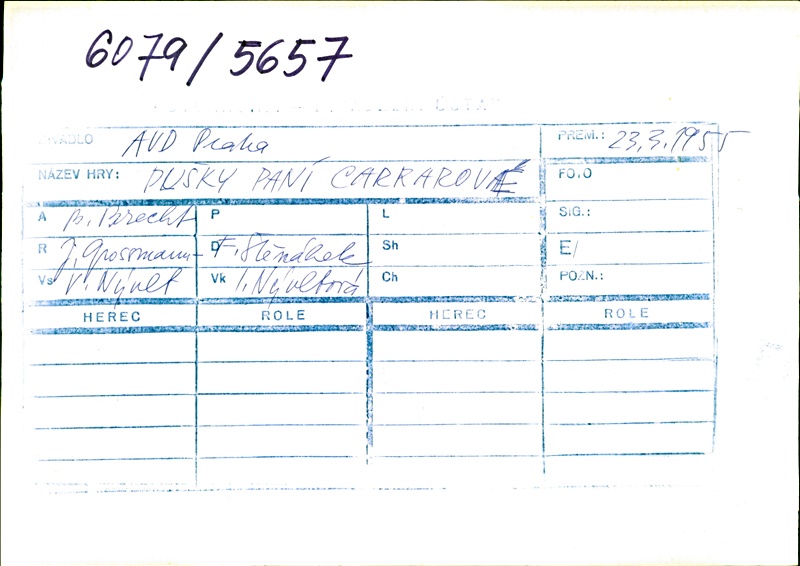 6079/5657
DIVADLO AVD Praha PREM.: 23.3.1955
NÁZEV HRY: PUŠKY PANÍ CARRAROVÉ FOTO
A B. Brecht P L SIG.:
R J. Grossmann - D F. Štěpánek Sh E/
Vs V. Nývlt Vk I. Nývltová Ch POZN.:
HEREC ROLE HEREC ROLE